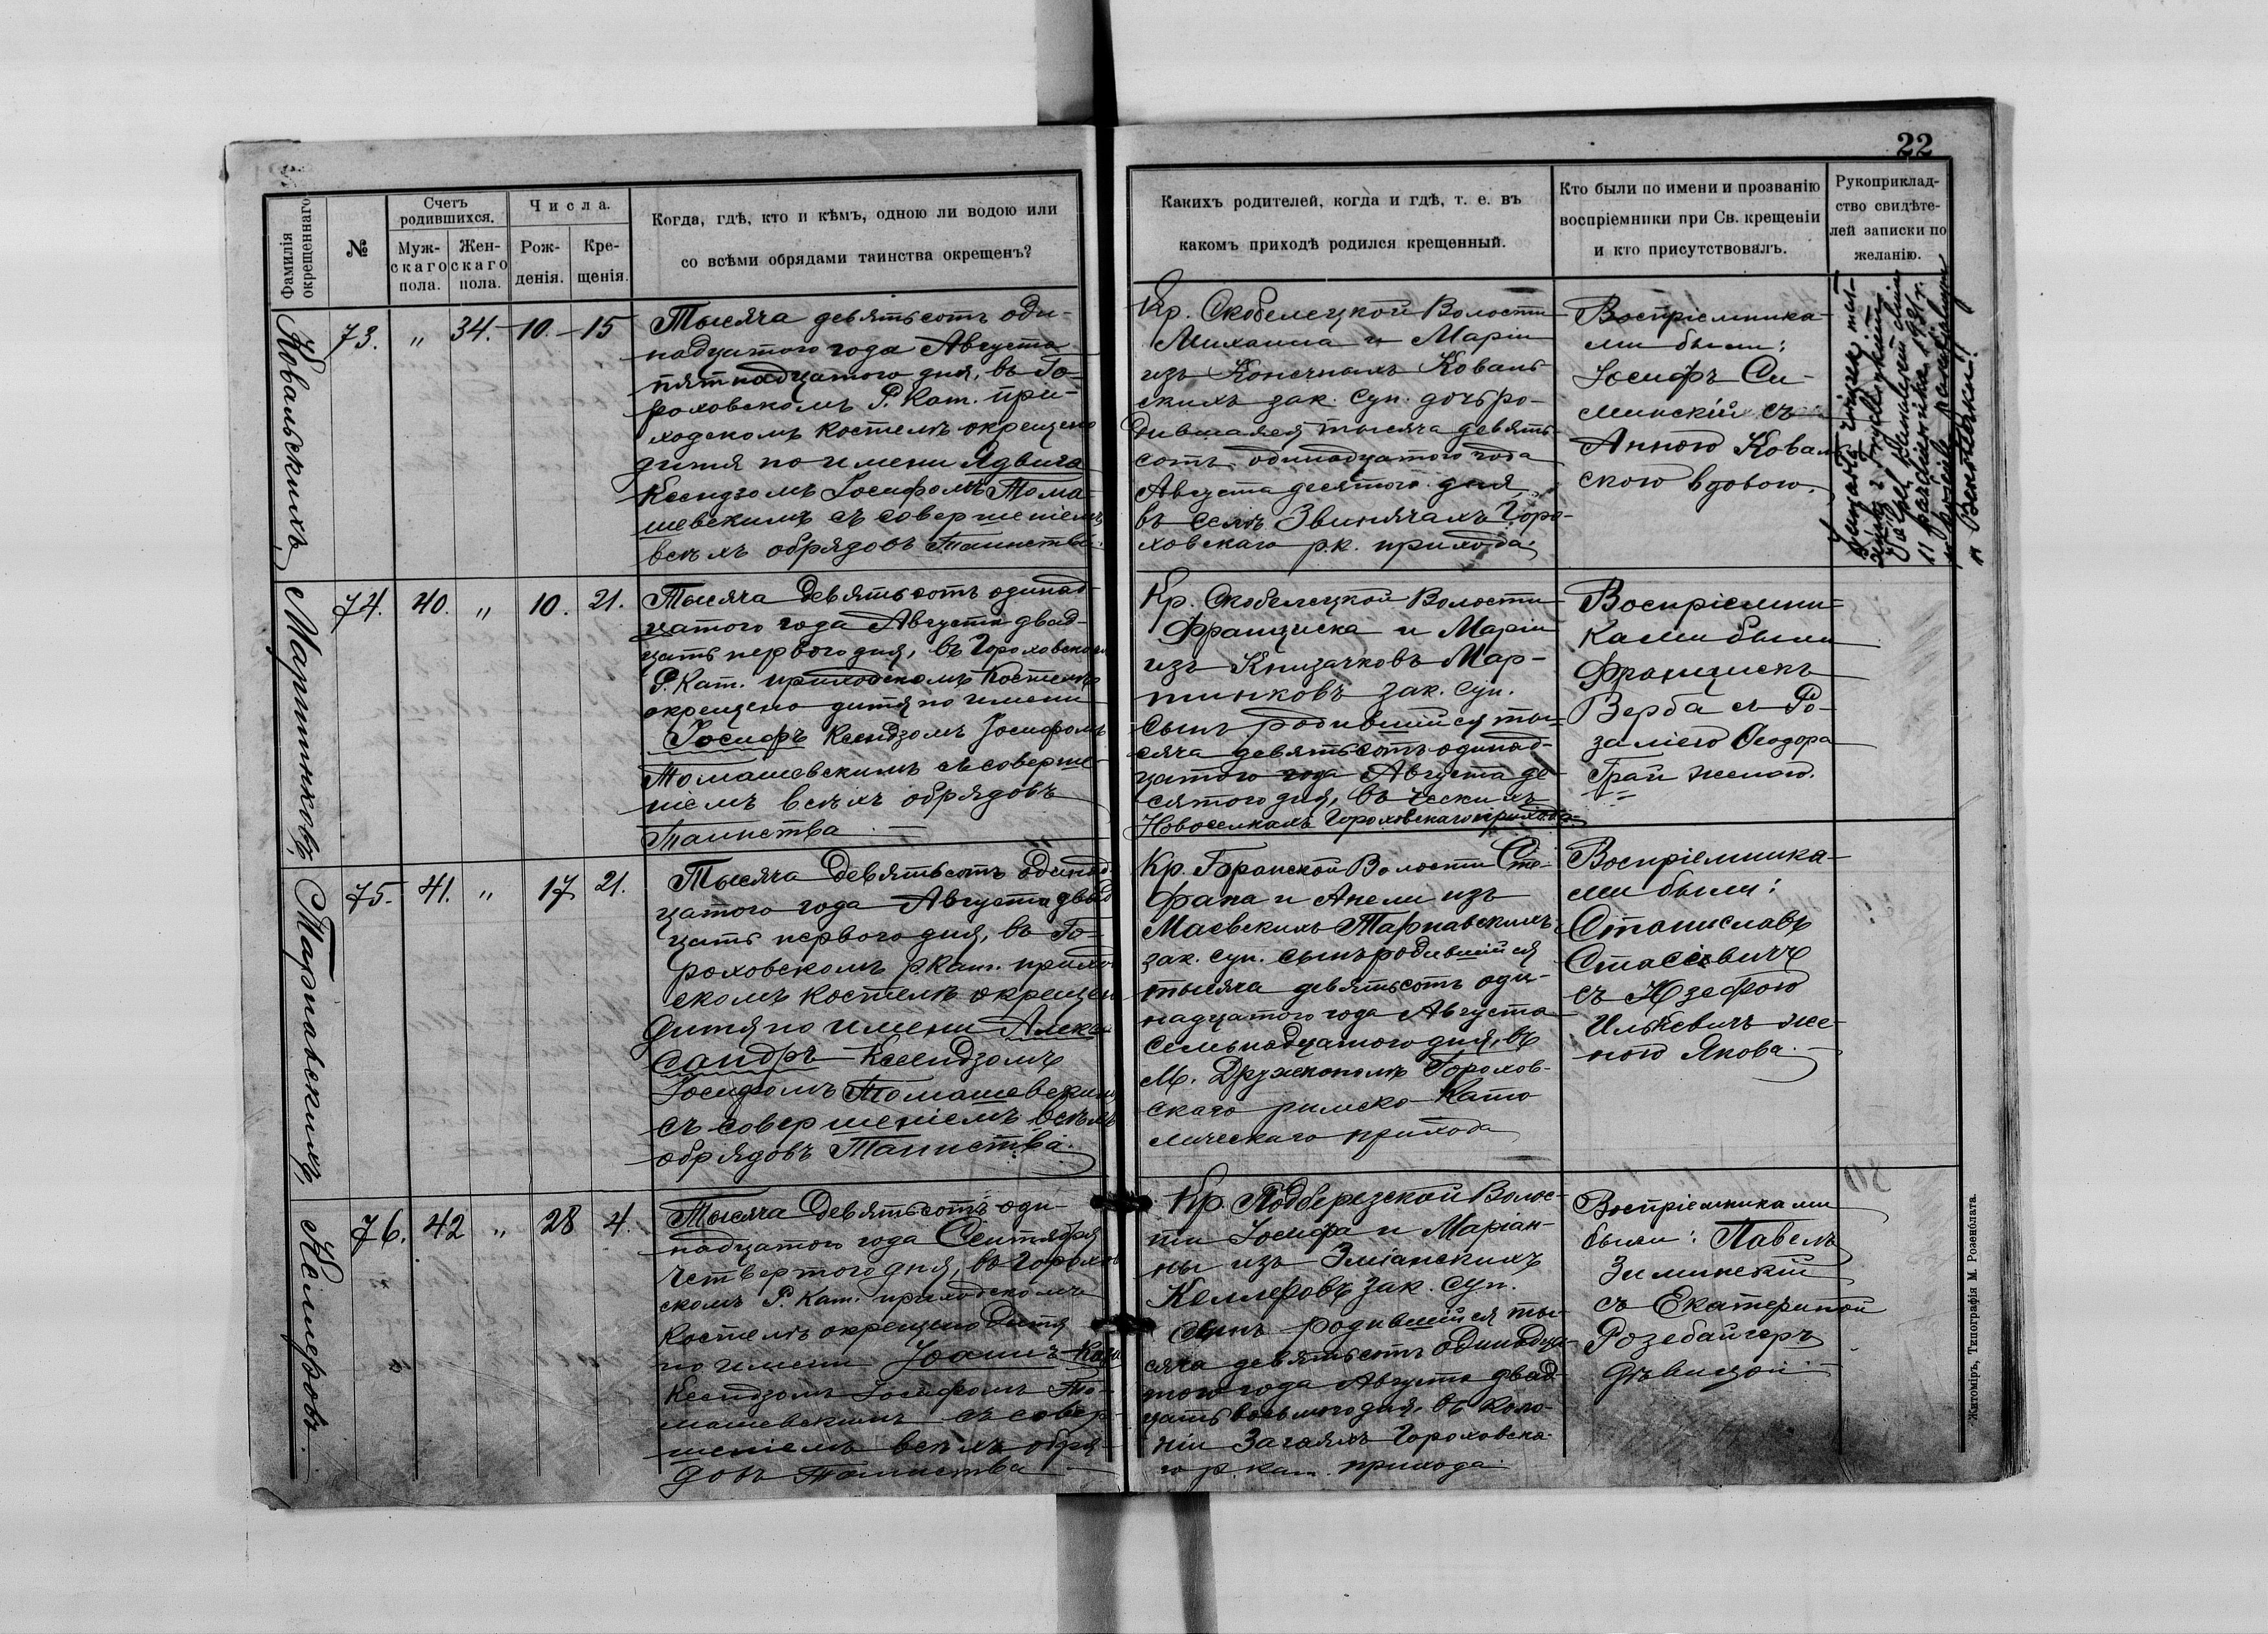 22
Фамилія окрещеннаго
№
Счетъ родившихся.
Муж-скаго пола.
Жен-скаго пола.
Числа.
Рож-денія.
Кре-щенія.
Когда, гдѣ, кто и кѣмъ, одною ли водою или
со всѣми обрядами таинства окрещенъ?
Какихъ родителей, когда и гдѣ, т. е. въ
какомъ приходѣ родился крещенный.
Кто были по имени и прозванію
воспріемники при Св. крещеніи
и кто присутствовалъ.
Рукоприклад-
ство свидѣте-
лей записки по
желанію.
Ковальскихъ
73. " 34. 10. 15
Тысяча девятьсотъ оди-
надцатого года Августа
пятнадцатого дня, въ Го-
роховскомъ Р. Кат. при-
ходскомъ костелѣ окрещено
дитя по имени Ядвига
Ксендзомъ Іосифомъ Тома-
шевскимъ съ совершеніемъ
всѣхъ обрядовъ Таинства.
Кр. Скобелецкой Волости
Михаила и Маріи
изъ Конечныхъ Коваль-
скихъ зак. суп. дочь ро-
дившаяся тысяча девять-
сотъ одинадцатого года
Августа десятого дня,
въ селѣ Звинячахъ Горо-
ховскаго р.к. прихода.
Воспріемника-
ми были:
Іосифъ Си-
минскій съ
Анною Коваль
скою вдовою.
Мартинковъ
74. 40. " 10. 21.
Тысяча девятьсотъ одинад-
цатого года Августа двад-
цать первого дня, въ Гороховскомъ
Р. Кат. приходскомъ Костелѣ
окрещено дитя по имени
Іосифъ Ксендзомъ Іосифомъ
Томашевскимъ съ соверше-
ніемъ всѣхъ обрядовъ
Таинства.
Кр. Скобелецкой Волости
Франциска и Маріи
изъ Книзачковъ Мар-
тинковъ зак. суп.
сынъ родившійся ты-
сяча девятьсотъ одинад-
цатого года Августа де-
сятого дня, въ Ческихъ
Новоселкахъ Гороховскаго прихода.
Воспріемни-
ками были
Францискъ
Верба съ Ро-
заліею Ѳеодора
Грай женою.
Тарнавскихъ
75. 41. " 17 21.
Тысяча девятьсотъ одинад-
цатого года Августа двад
цать первого дня, въ Го-
роховскомъ р.кат. приход
скомъ костелѣ окрещен
дитя по имени Алек
сандръ Ксендзомъ
Іосифомъ Томашевскимъ
съ совершеніемъ всѣхъ
обрядовъ Таинства.
Кр. Боранской Волости Сте-
фана и Анели изъ
Маевскихъ Тарнавскихъ
зак. суп. сынъ родившійся
тысяча девятьсотъ оди-
надцатого года Августа
семьнадцатого дня, въ
м. Дружкополѣ Горохов-
скаго римско-като
лическаго прихода
Воспріемника-
ми были:
Станиславъ
Стасевичъ
съ Юзефою
Илькевичъ же-
ною Якова.
Келлеровъ.
76. 42 " 28 4.
Тысяча девятьсотъ оди-
надцатого года Сентября
четвертого дня, въ Горохов
скомъ Р. Кат. приходскомъ
костелѣ окрещено дитя
по имени Іоаннъ
Ксендзомъ Іосифомъ То-
машевскимъ съ совер-
шеніемъ всѣхъ обря-
довъ Таинства
Кр. Подберезской Волос-
ти Іосифа и Маріан-
ны изъ Зміанскихъ
Келлеровъ зак. суп.
сынъ родившійся ты-
сяча девятьсотъ одинадца
того года Августа двад-
цать восьмого дня, въ коло-
ніи Загаяхъ Гороховска-
го р.кат. прихода.
Воспріемниками
были: Павелъ
Зиминскій
съ Екатериной
Розебайгеръ
дѣвицой
Житоміръ, Типографія М. Розенблата